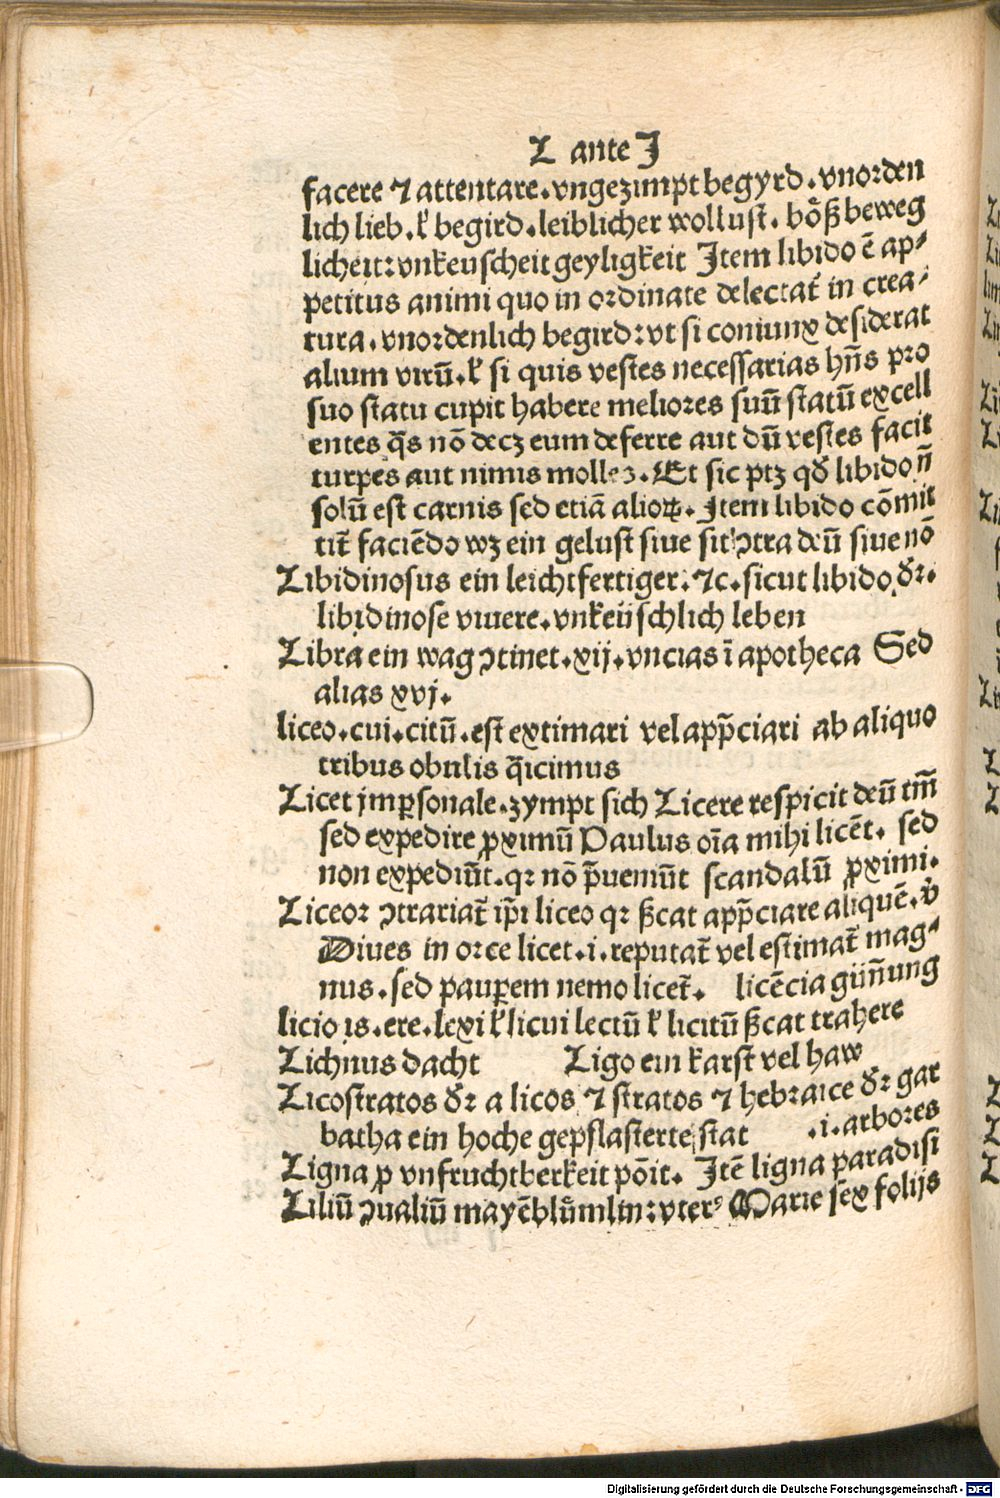 L ante J
facere ⁊ attentare. vngezimpt begyrd. vnorden
lich lieb. ł begird. leiblicher wollust. bôß beweg
licheit: vnkeuscheit geyligkeit Item libido ē ap⸗
petitus animi quo in ordinate delectat᷑ in crea⸗
tura. vnordenlich begird: vt si coniunx desiderat
alium virū. ł si quis vestes necessarias hn̄s pro
suo statu cupit habere meliores suū statū excell
entes q̄s nō decz eum deferre aut dū vestes facit
turpes aut nimis molles. Et sic ptz qđ libido n̄
solū est carnis sed etiā alioꝝ. Item libido cōmit
tit᷑ faciēdo wz ein gelust siue sit ꝯtra deū siue nō
Libidinosus ein leichtfertiger. ⁊c. sicut libido. đr.
libidinose viuere. vnkeüschlich leben
Libra ein wag ꝯtinet. xij. vncias ī apotheca Sed
alias xvj.
liceo. cui. citū. est extimari vel app̄ciari ab aliquo
tribus obulis q̄icimus
Licet jmꝑsonale. zympt sich Licere respicit deū tm̄
sed expedire ꝓximū Paulus oīa mihi licēt. sed
non expediūt. qꝛ nō p̄uemūt scandalū ꝓximi.
Liceor ꝯtrariat᷑ ip̄i liceo qꝛ ßcat app̄ciare aliquē. v̇
Diues in orce licet. i. reputat᷑ vel estimat᷑ mag⸗
nus. sed pauꝑem nemo licet᷑. licēcia gün̄ung
licio is. ere. lexi ł licui lectū ł licitū ßcat trahere
Lichnus dacht Ligo ein karst vel haw
Licostratos đr a licos ⁊ stratos ⁊ hebraice đr gat
batha ein hoche gepflasterte stat .i. arbores
Ligna ꝓ vnfruchtberkeit pōit. Itē ligna paradisi
Liliū ꝯualiū mayēblůmlin: vterꝰ Marie sex folijs
Digitalisierung gefördert durch die Deutsche Forschungsgemeinschaft - DFG